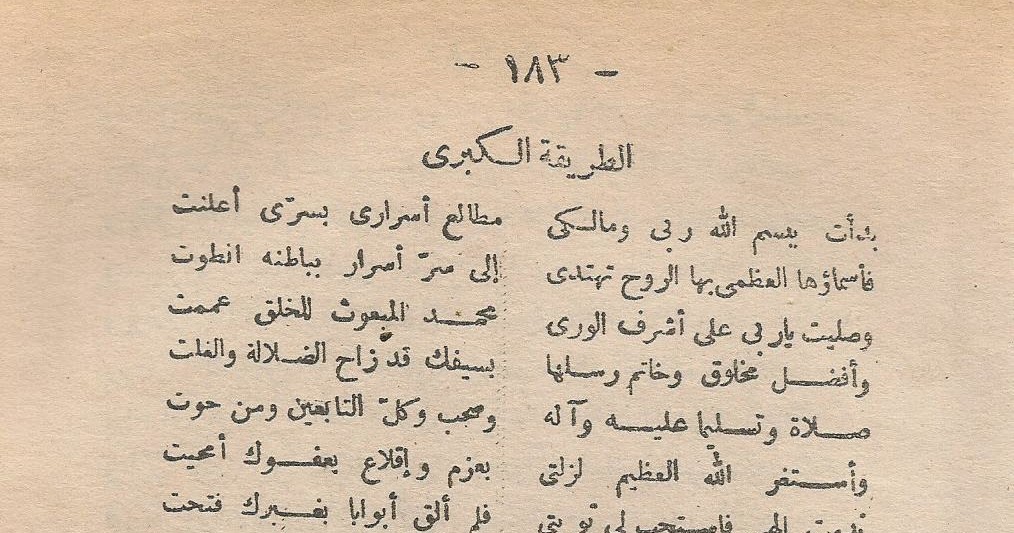 - ١٨٣ -
الطريقة الكبرى
بدأت ببسم الله ربى ومالكى مطالع أسرارى بسرّى أعلنت
فأسماؤها العظمى بها الروح تهتدى إلى سرّ أسرار بباطنه انطوت
وصليت ياربى على أشرف الورى محمد المبعوث للخلق عممت
وأفضل مخلوق وخاتم رسلها بسيفك قد زاح الضلالة والغلت
صلاة وتسليما عليه وآله وصحب وكلّ التابعين ومن حوت
وأستغفر الله العظيم لزلتى بعزم وإقلاع بعفوك أمحيت
فاستجب لى توبتى فلم ألق أبوابا بغيرك فتحت